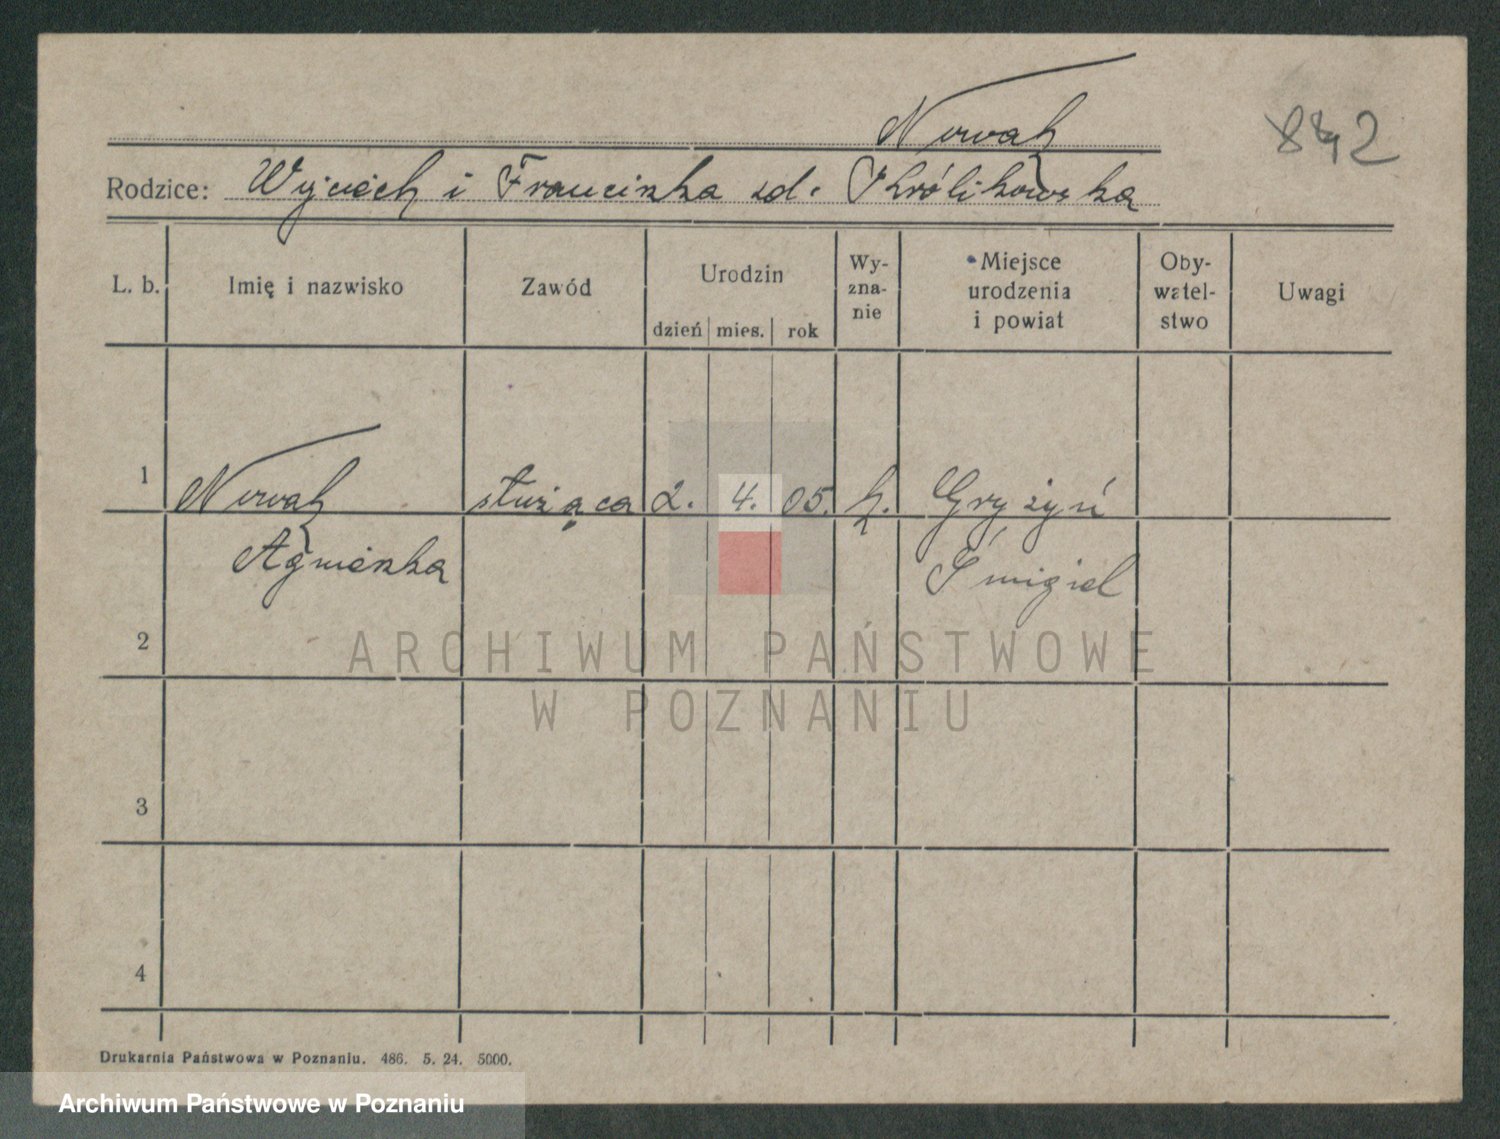 Nowak
842
Rodzice: Wojciech i Franciszka zd. Królikowska
L. b. Imię i nazwisko Zawód Urodzin dzień mies. rok Wy-zna-nie Miejsce urodzenia i powiat Oby-watel-stwo Uwagi
1 Nowak służąca 2. 4. 05. k. Gryżyń
Agnieszka Śmigiel
2
ARCHIWUM PAŃSTWOWE
W POZNANIU
3
4
Drukarnia Państwowa w Poznaniu. 486. 5. 24. 5000.
Archiwum Państwowe w Poznaniu